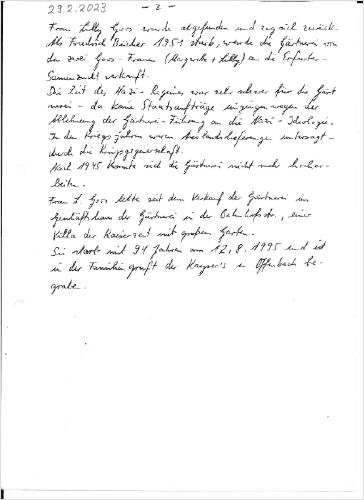 23.2.2023 - 2 -
Frau Lilly Goos wurde abgefunden und zog sich zurück.
Als Friedrich Bücher 1951 starb, wurde die Gärtnerei von
den zwei Goos-Frauen (Margarethe + Lilly) an die Erfurter-
Samenzucht verkauft.
Die Zeit des Nazi-Regimes war sehr schwer für die Gärt
nerei - da keine Staatsaufträge eingingen wegen der
Ablehnung der Gärtnerei-Führung an die Nazi-Ideologie.
In den Kriegsjahren waren Auslandslieferungen untersagt -
durch die Kriegsgegnerschaft.
Nach 1945 konnte sich die Gärtnerei nicht mehr hochar-
beiten.
Frau L. Goos lebte seit dem Verkauf der Gärtnerei im
Geschäftshaus der Gärtnerei in der Bahnhofstr., einer
Villa der Kaiserzeit mit großem Garten.
Sie starb mit 94 Jahren am 12.8.1995 und ist
in der Familiengruft der Kayser's in Offenbach be-
graben.